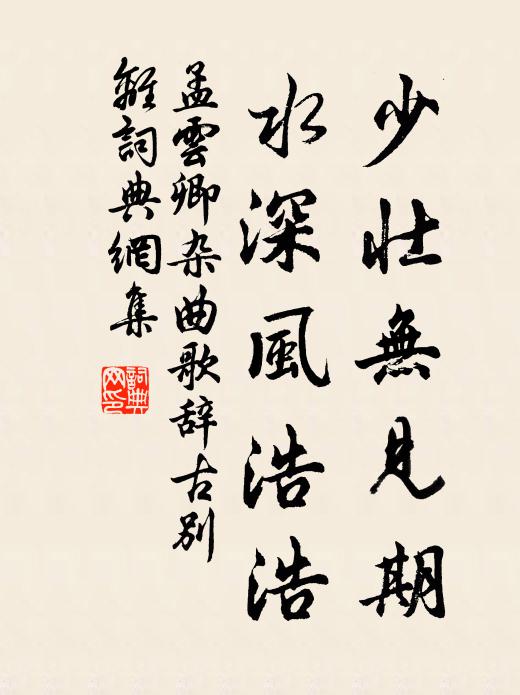 少壮無見期
水深風浩浩
孟雲卿杂曲歌辞古别
離詞典網集
詞典
网印